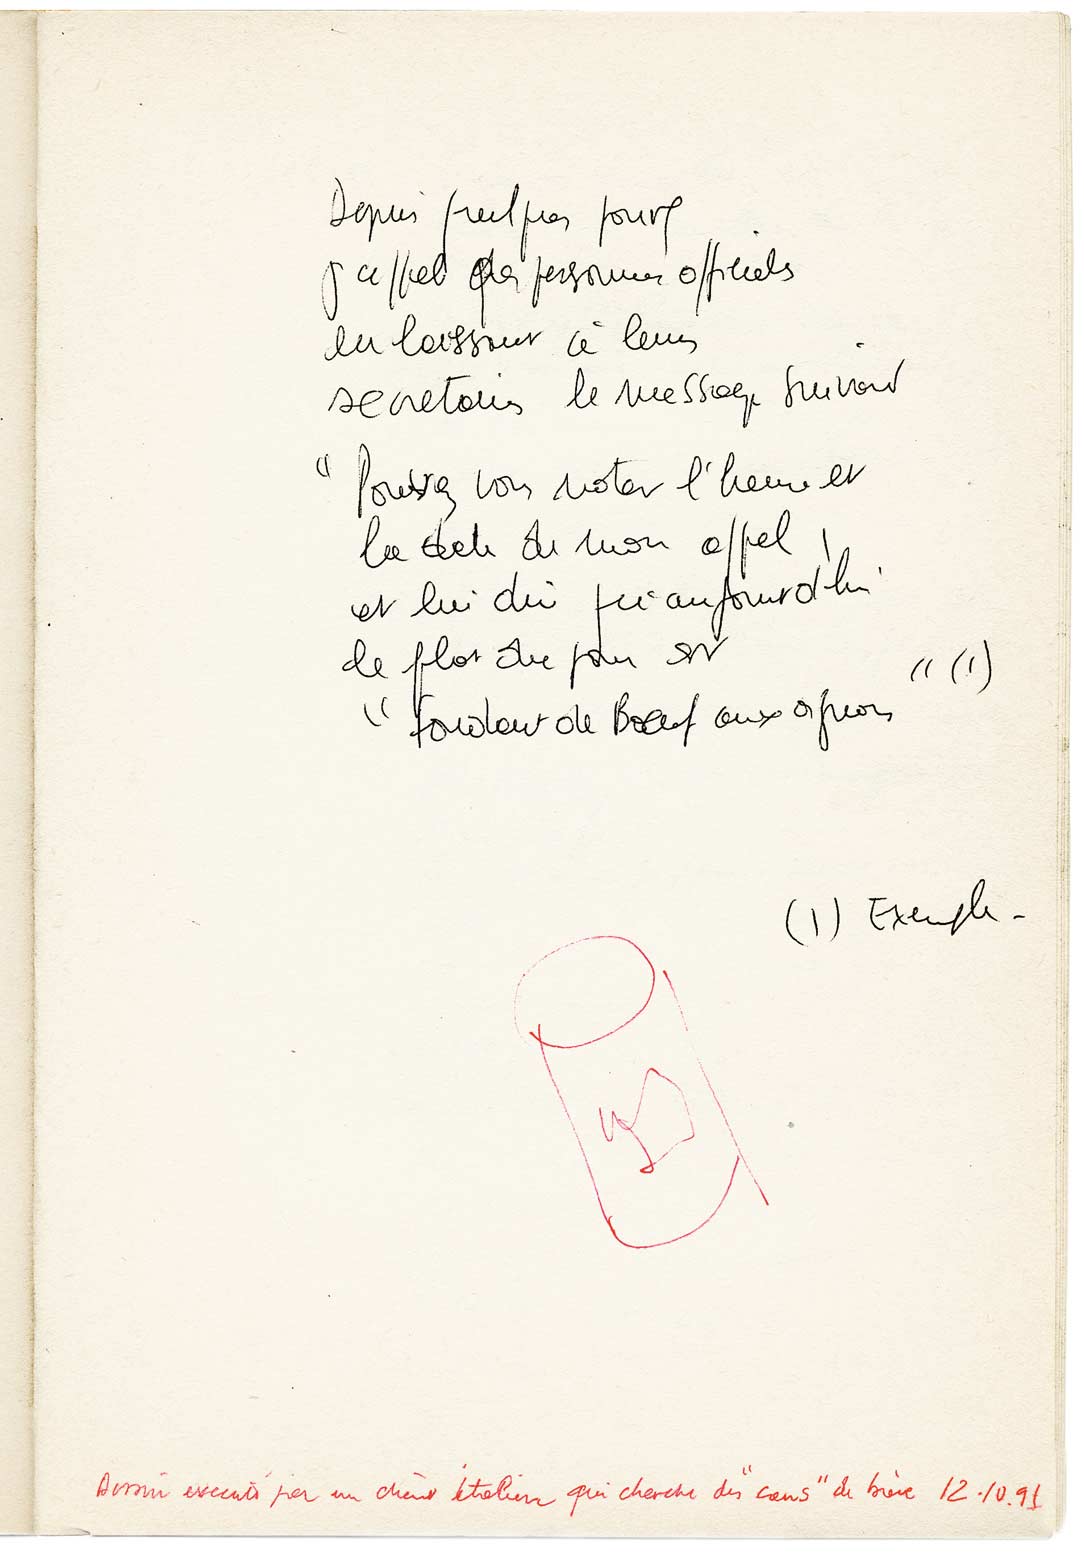 Depuis quelques jours
j'appel des personnes officiels
en laissant à leurs
secretaires le message suivant
"Pouvez vous noter l'heure et
la date de mon appel,
et lui dire qu'aujourd'hui
le plat du jour est
"Fondant de Boeuf aux oignons" "(1)
(1) Exemple -
Dessin executé par un client italien qui cherche des "cans" de bière 12.10.91